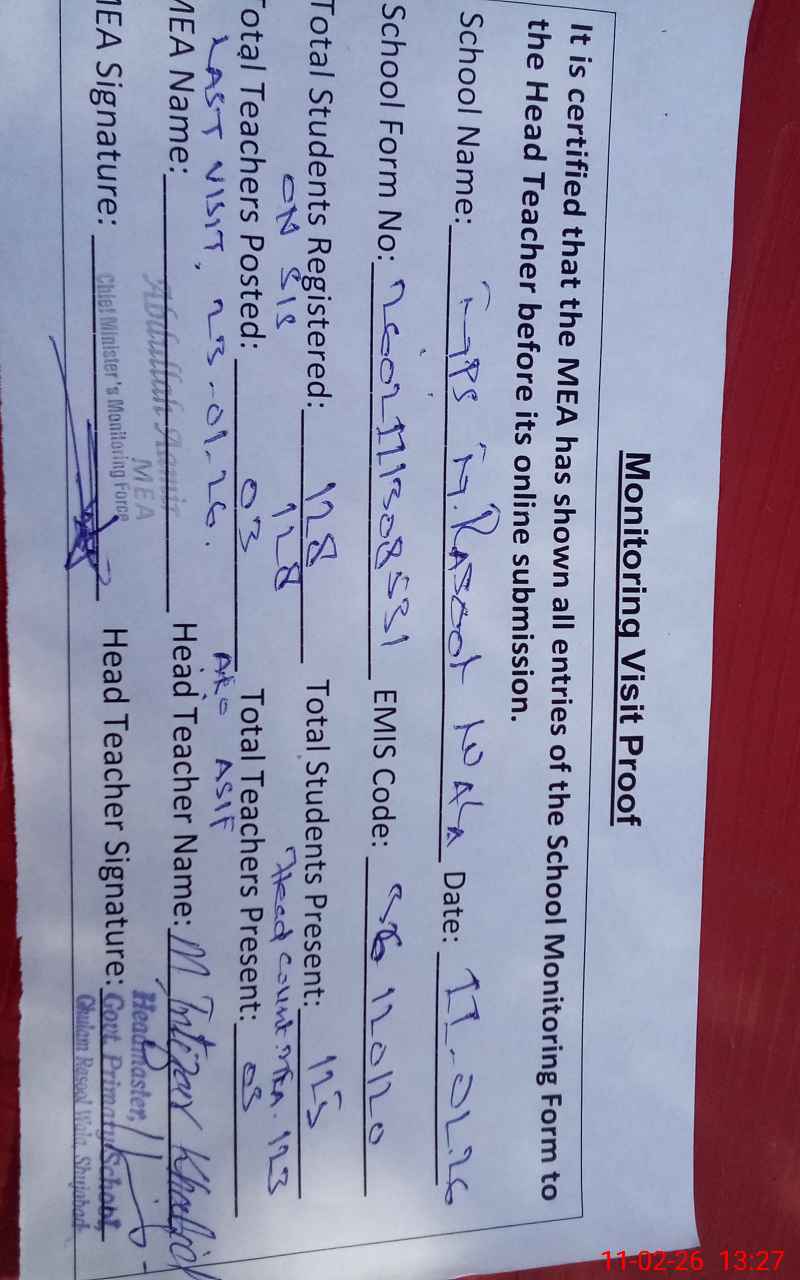 Monitoring Visit Proof
It is certified that the MEA has shown all entries of the School Monitoring Form to
the Head Teacher before its online submission.
School Name: GPS G. RASOOL WALA Date: 11-02-26
School Form No: 26021111308531 EMIS Code: 36120120
Total Students Registered: 128 Total Students Present: 125
ON SIS 128 Head count MEA. 123
Total Teachers Posted: 03 Total Teachers Present: 03
LAST VISIT, 23-01-26. ASIF
MEA Name: Abdullah Aamir Head Teacher Name: M. Intizar Khalid
MEA
Chief Minister's Monitoring Force
MEA Signature: Head Teacher Signature:
Headmaster,
Govt. Primary School,
Ghulam Rasool Wala, Shujabad
11-02-26 13:27